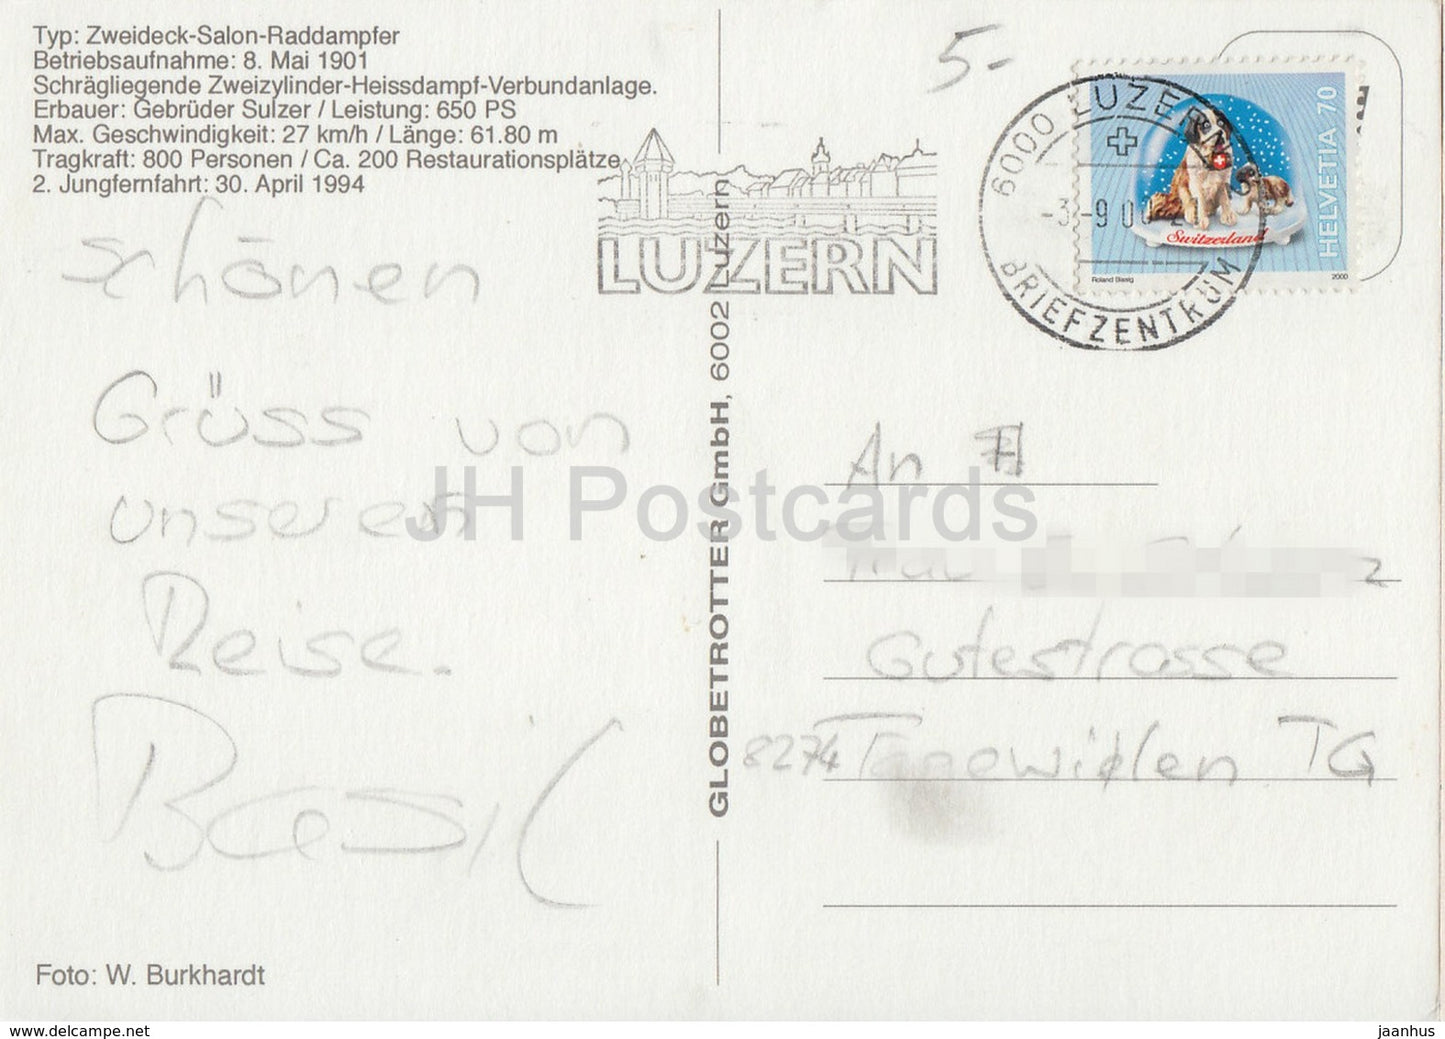 Typ: Zweideck-Salon-Raddampfer
Betriebsaufnahme: 8. Mai 1901
Schrägliegende Zweizylinder-Heissdampf-Verbundanlage.
Erbauer: Gebrüder Sulzer / Leistung: 650 PS
Max. Geschwindigkeit: 27 km/h / Länge: 61.80 m
Tragkraft: 800 Personen / Ca. 200 Restaurationsplätze
2. Jungfernfahrt: 30. April 1994
schönen
Grüss von
unseren
Reise.
Basil
Foto: W. Burkhardt
GLOBETROTTER GmbH, 6002 Luzern
LUZERN
5.-
6000 LUZERN
-3.-9 00
BRIEFZENTRUM
HELVETIA 70
Switzerland
Roland Bisig
2000
An
Gutestrasse
8274 Tagewielen TG
JH Postcards
www.delcampe.net
jaanhus